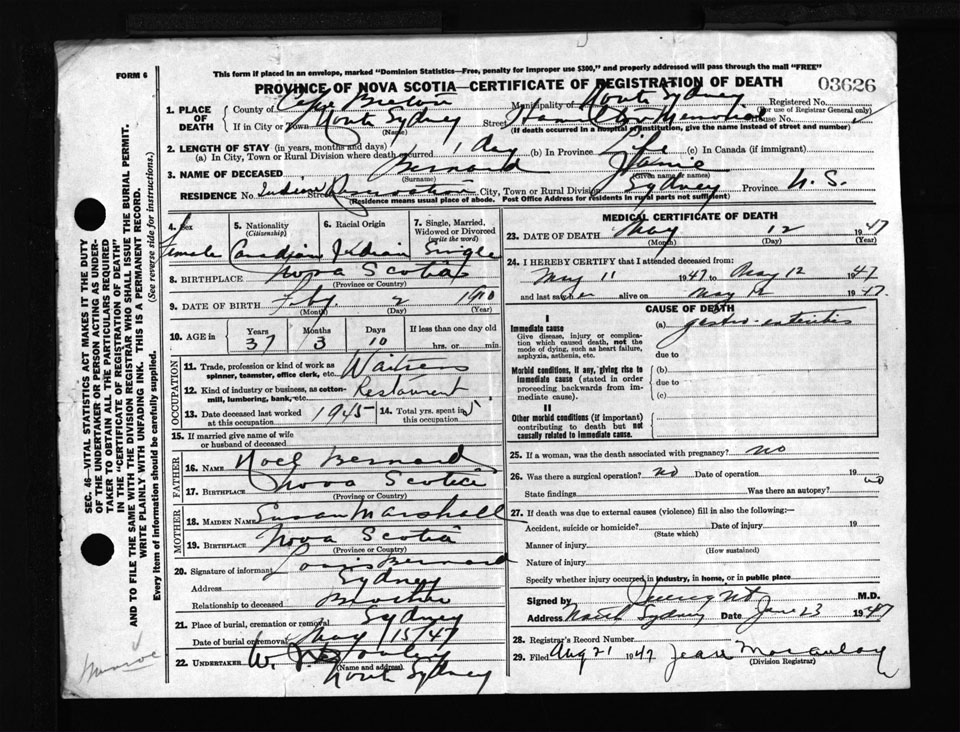 FORM 6
This form if placed in an envelope, marked "Dominion Statistics—Free, penalty for improper use $300," and properly addressed will pass through the mail "FREE"
PROVINCE OF NOVA SCOTIA—CERTIFICATE OF REGISTRATION OF DEATH
03626
1. PLACE OF DEATH County of Cape Breton Municipality of North Sydney Registered No.
(For use of Registrar General only)
If in City or Town North Sydney Street Hamilton Memorial House No.
(Name) (If death occurred in a hospital or institution, give the name instead of street and number)
2. LENGTH OF STAY (in years, months and days)
(a) In City, Town or Rural Division where death occurred 1 day (b) In Province Life (c) In Canada (if immigrant)
3. NAME OF DECEASED Bernard
(Surname) (Given name or names)
RESIDENCE No. Indian Street Reservation City, Town or Rural Division Sydney Province N. S.
(Residence means usual place of abode. Post Office Address for residents in rural parts not sufficient)
4. Sex Female
5. Nationality (Citizenship) Canadian
6. Racial Origin Indian
7. Single, Married, Widowed or Divorced (write the word) Single
8. BIRTHPLACE Nova Scotia
(Province or Country)
9. DATE OF BIRTH Feby. 2 1910
(Month) (Day) (Year)
10. AGE in Years 37 Months 3 Days 10 If less than one day old hrs. or min.
OCCUPATION
11. Trade, profession or kind of work as spinner, teamster, office clerk, etc. Waitress
12. Kind of industry or business, as cotton-mill, lumbering, bank, etc. Restaurant
13. Date deceased last worked at this occupation 1945 14. Total yrs. spent in this occupation 5
15. If married give name of wife or husband of deceased
FATHER
16. NAME Noel Bernard
17. BIRTHPLACE Nova Scotia
(Province or Country)
MOTHER
18. MAIDEN NAME Susan Marshall
19. BIRTHPLACE Nova Scotia
(Province or Country)
20. Signature of informant Louis Bernard
Address Sydney
Relationship to deceased Brother
21. Place of burial, cremation or removal Sydney
Date of burial or removal May 15/47
22. UNDERTAKER W. J.
(Name and address)
North Sydney
MEDICAL CERTIFICATE OF DEATH
23. DATE OF DEATH May 12 1947
(Month) (Day) (Year)
24. I HEREBY CERTIFY that I attended deceased from:
May 11 1947 to May 12 1947
and last saw her alive on May 1947
CAUSE OF DEATH
I
Immediate cause (a) gastro-enteritis
Give disease, injury or complication which caused death, not the mode of dying, such as heart failure, asphyxia, asthenia, etc.
due to
Morbid conditions, if any, giving rise to immediate cause (stated in order proceeding backwards from immediate cause).
(b)
due to
(c)
II
Other morbid conditions (if important) contributing to death but not causally related to immediate cause.
25. If a woman, was the death associated with pregnancy? no
26. Was there a surgical operation? no Date of operation 19
State findings Was there an autopsy? no
27. If death was due to external causes (violence) fill in also the following:—
Accident, suicide or homicide? Date of injury 19
(State which)
Manner of injury
(How sustained)
Nature of injury
Specify whether injury occurred in industry, in home, or in public place
Signed by M.D.
Address North Sydney Date June 23 1947
28. Registrar's Record Number
29. Filed Aug 21 1947 Jean Macaulay
(Division Registrar)
SEC. 46—VITAL STATISTICS ACT MAKES IT THE DUTY
OF THE UNDERTAKER OR PERSON ACTING AS UNDER-
TAKER TO OBTAIN ALL THE PARTICULARS REQUIRED
IN THE "CERTIFICATE OF REGISTRATION OF DEATH"
AND TO FILE THE SAME WITH THE DIVISION REGISTRAR WHO SHALL ISSUE THE BURIAL PERMIT.
WRITE PLAINLY WITH UNFADING INK. THIS IS A PERMANENT RECORD.
Every item of information should be carefully supplied. (See reverse side for instructions.)
Munroe